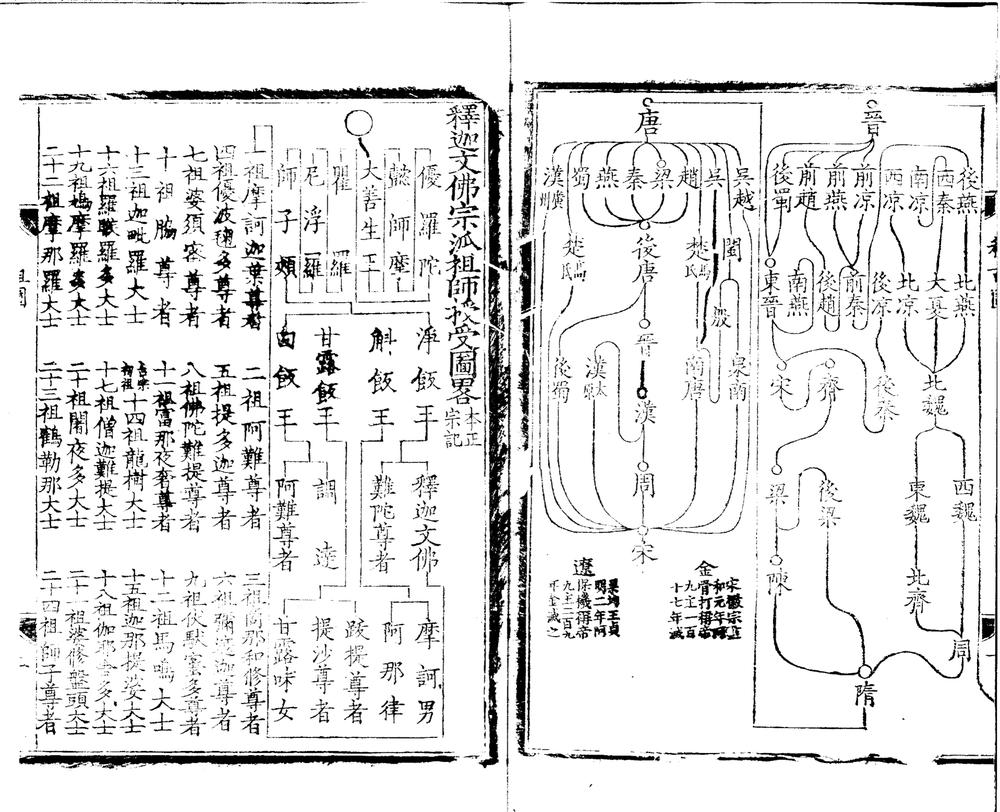 晉
後燕
西秦
南凉
西凉
前凉
前燕
前趙
後蜀
北燕
大夏
北凉
後凉
前秦
後趙
南燕
東晉
北魏
後秦
齊
宋
西魏
東魏
後梁
梁
北齊
陳
周
隋
唐
吳越
吳
趙
梁
秦
燕
蜀
漢
閩
殷
楚馬氏
後唐
楚
晉
泉南
南唐
漢
後蜀
周
宋
金
宋徽宗
和元年
骨打稱帝
九主一百
十七年滅
遼
明二年阿
保機稱帝
九主二百九
年金滅之
釋迦文佛宗派祖師授受圖畧
本正
宗記
優羅陀
師摩
大善生王
瞿羅
尼浮羅
師子頰
淨飯王
斛飯王
甘露飯王
白飯王
釋迦文佛
難陀尊者
調達
阿難尊者
摩訶男
阿那律
跋提尊者
提沙尊者
甘露味女
一祖摩訶迦葉尊者
二祖阿難尊者
三祖商那和修尊者
四祖優波毱多尊者
五祖提多迦尊者
六祖彌遮迦尊者
七祖婆須密尊者
八祖佛陀難提尊者
九祖伏馱蜜多尊者
十祖脇尊者
十一祖富那夜奢尊者
十二祖馬鳴大士
十三祖迦毗羅大士
十四祖龍樹大士
十五祖迦那提婆大士
十六祖羅睺羅多大士
十七祖僧迦難提大士
十八祖伽耶舍多大士
十九祖鳩摩羅多大士
二十祖闍夜多大士
二十一祖婆修盤頭大士
二十二祖摩那羅大士
二十三祖鶴勒那大士
二十四祖師子尊者
祖圖